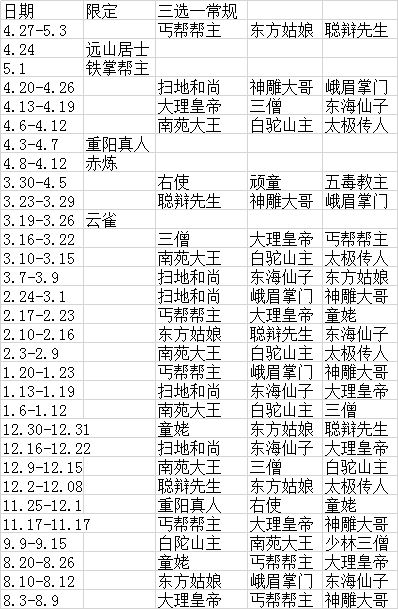 日期 限定 三选一常规
4.27-5.3 丐帮帮主 东方姑娘 聪辩先生
4.24 远山居士
5.1 铁掌帮主
4.20-4.26 扫地和尚 神雕大哥 峨眉掌门
4.13-4.19 大理皇帝 三僧 东海仙子
4.6-4.12 南苑大王 白驼山主 太极传人
4.3-4.7 重阳真人
4.8-4.12 赤炼
3.30-4.5 右使 顽童 五毒教主
3.23-3.29 聪辩先生 神雕大哥 峨眉掌门
3.19-3.26 云雀
3.16-3.22 三僧 大理皇帝 丐帮帮主
3.10-3.15 南苑大王 白驼山主 太极传人
3.7-3.9 扫地和尚 东海仙子 东方姑娘
2.24-3.1 扫地和尚 峨眉掌门 神雕大哥
2.17-2.23 丐帮帮主 大理皇帝 童姥
2.10-2.16 东方姑娘 聪辩先生 东海仙子
2.3-2.9 南苑大王 白驼山主 太极传人
1.20-1.23 丐帮帮主 峨眉掌门 神雕大哥
1.13-1.19 扫地和尚 东海仙子 大理皇帝
1.6-1.12 南苑大王 白驼山主 三僧
12.30-12.31 童姥 东方姑娘 聪辩先生
12.16-12.22 扫地和尚 东海仙子 大理皇帝
12.9-12.15 南苑大王 三僧 白驼山主
12.2-12.08 聪辩先生 东方姑娘 太极传人
11.25-12.1 重阳真人 右使 童姥
11.17-11.17 丐帮帮主 大理皇帝 神雕大哥
9.9-9.15 白陀山主 南苑大王 少林三僧
8.20-8.26 童姥 丐帮帮主 大理皇帝
8.10-8.12 东方姑娘 峨眉掌门 东海仙子
8.3-8.9 大理皇帝 丐帮帮主 神雕大哥